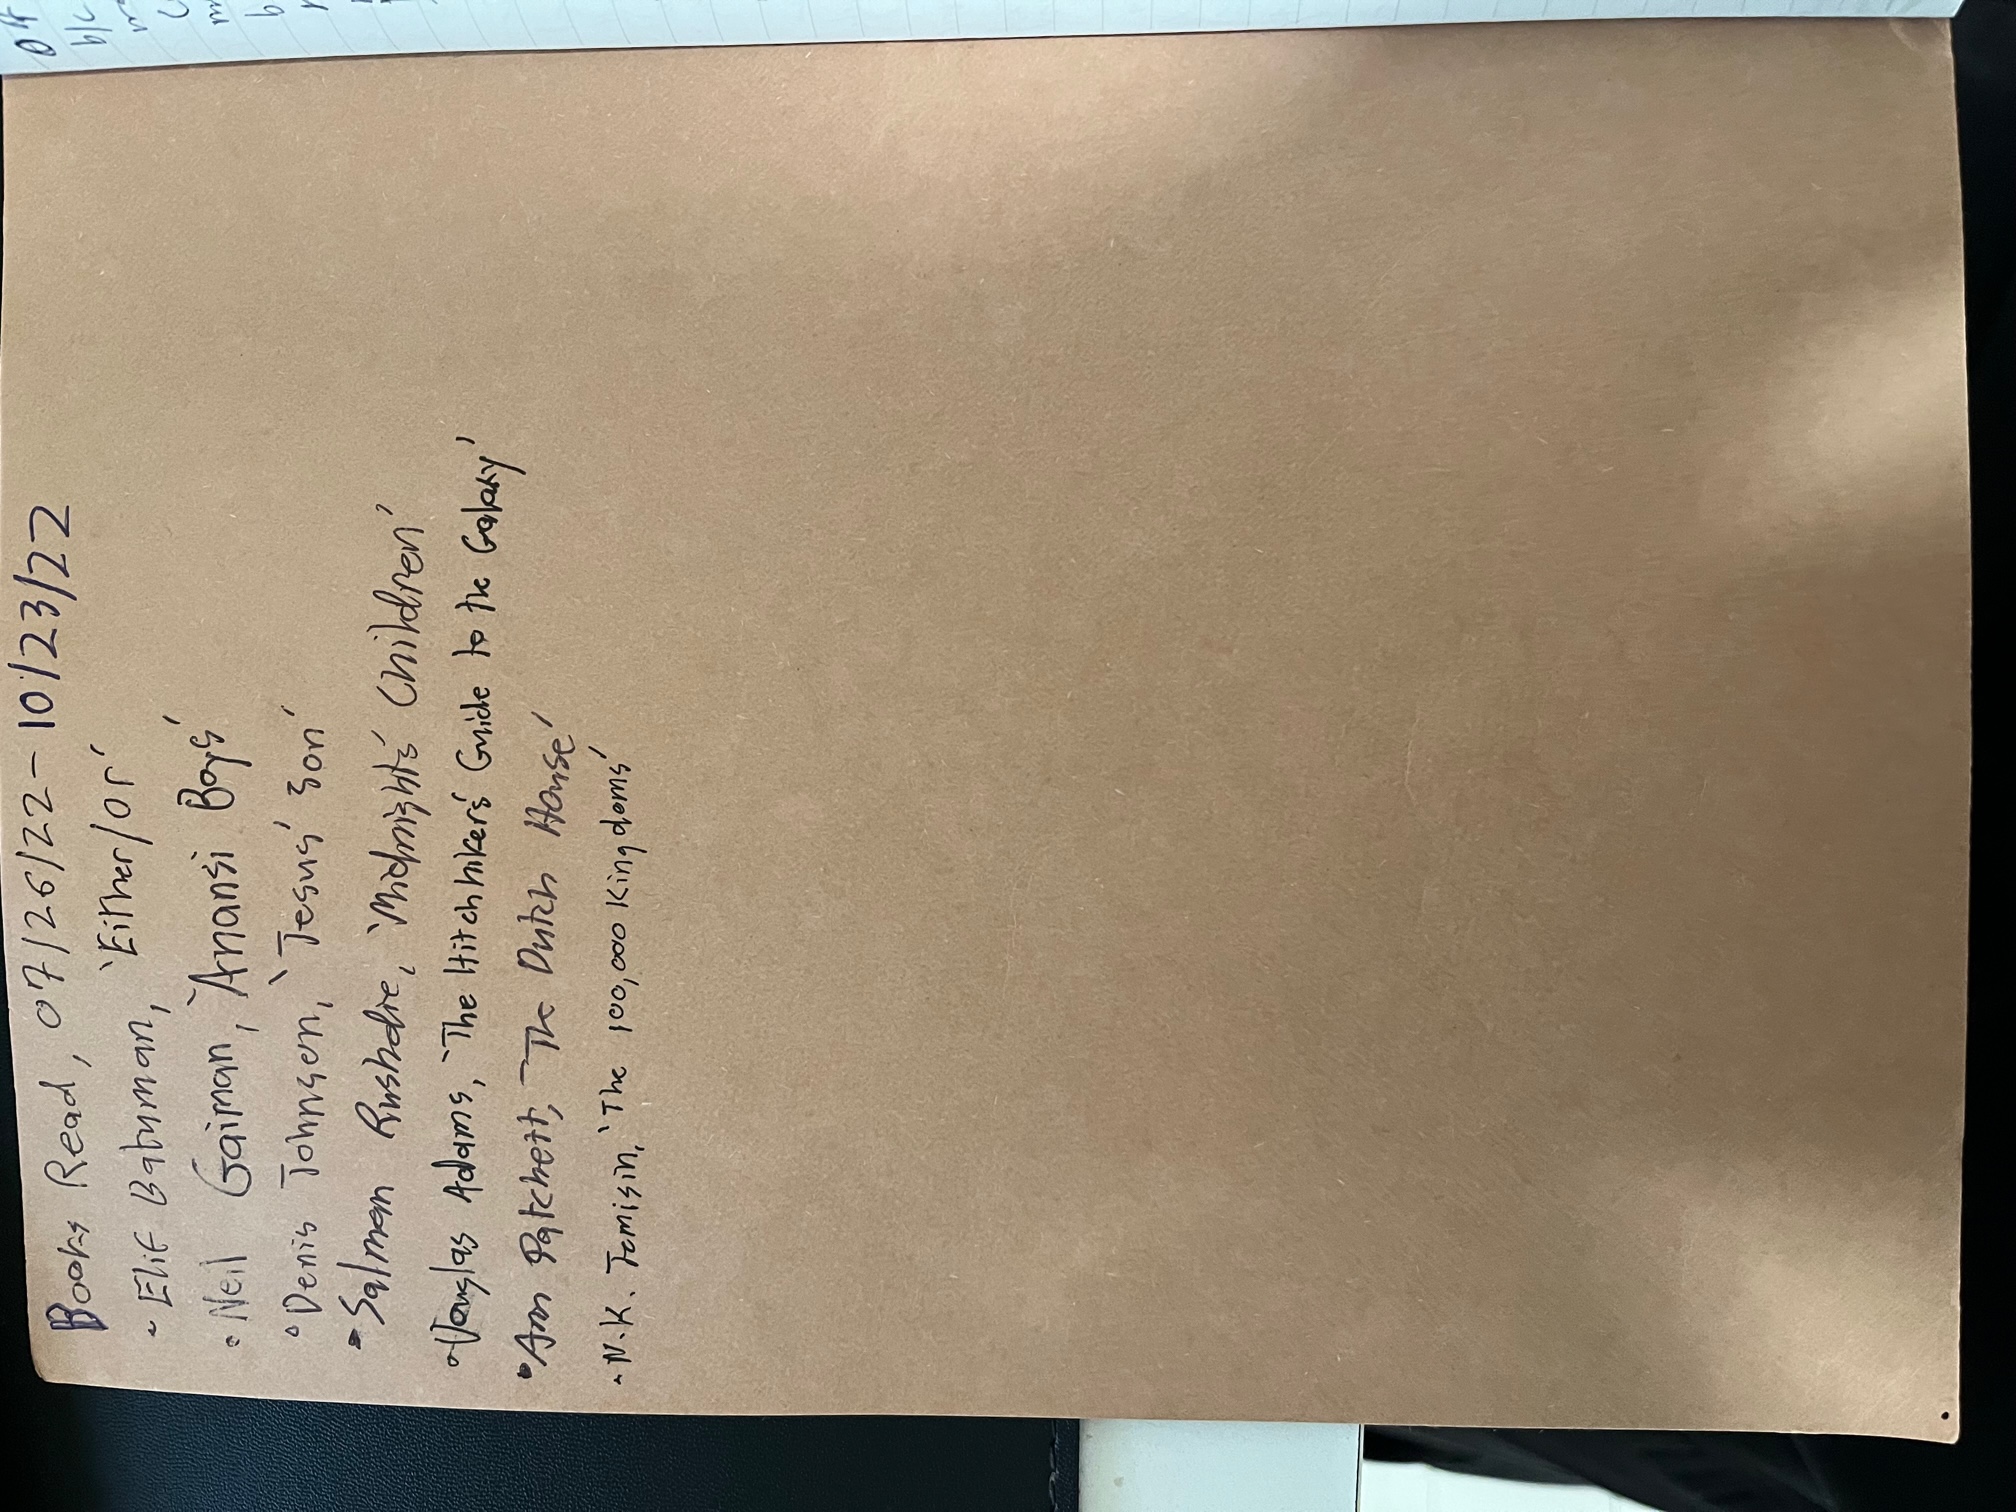 Books Read, 07/26/22 - 10/23/22
- Elif Batuman, 'Either/Or'
• Neil Gaiman, 'Anansi Boys'
• Denis Johnson, 'Jesus' Son'
• Salman Rushdie, 'Midnight's Children'
• Douglas Adams, 'The Hitchhiker's Guide to the Galaxy'
• Ann Patchett, 'The Dutch House'
- N.K. Jemisin, 'The 100,000 Kingdoms'
04
b/c